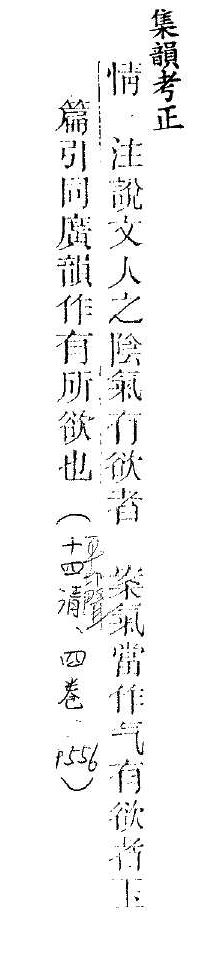 集韻考正
情 注說文人之陰氣有欲者 案氣當作气有欲者玉
篇引同廣韻作有所欲也(十四清、四卷、P556)
平聲